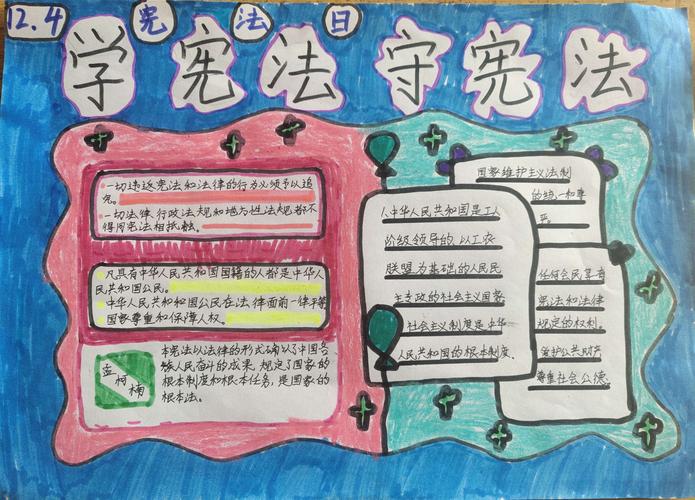 12.4 宪法日
学宪法 守宪法
一切违返宪法和法律的行为必须予以追
究。
一切法律、行政法规和地方性法规都不
得同宪法相抵触。
凡具有中华人民共和国国籍的人都是中华人
民共和国公民。
中华人民共和和国公民在法律面前一律平等
国家尊重和保障人权。
孟柯楠
本宪法以法律的形式确认了中国各
族人民奋斗的成果,规定了国家的
根本制度和根本任务,是国家的
根本法。
中华人民共和国是工人
阶级领导的,以工农
联盟为基础的人民民
主专政的社会主义国家
社会主义制度是中华
人民共和国的根本制度.
国家维护主义法制
的统一和尊
严
任何公民享有
宪法和法律
规定的权利。
爱护公共财产
尊重社会公德